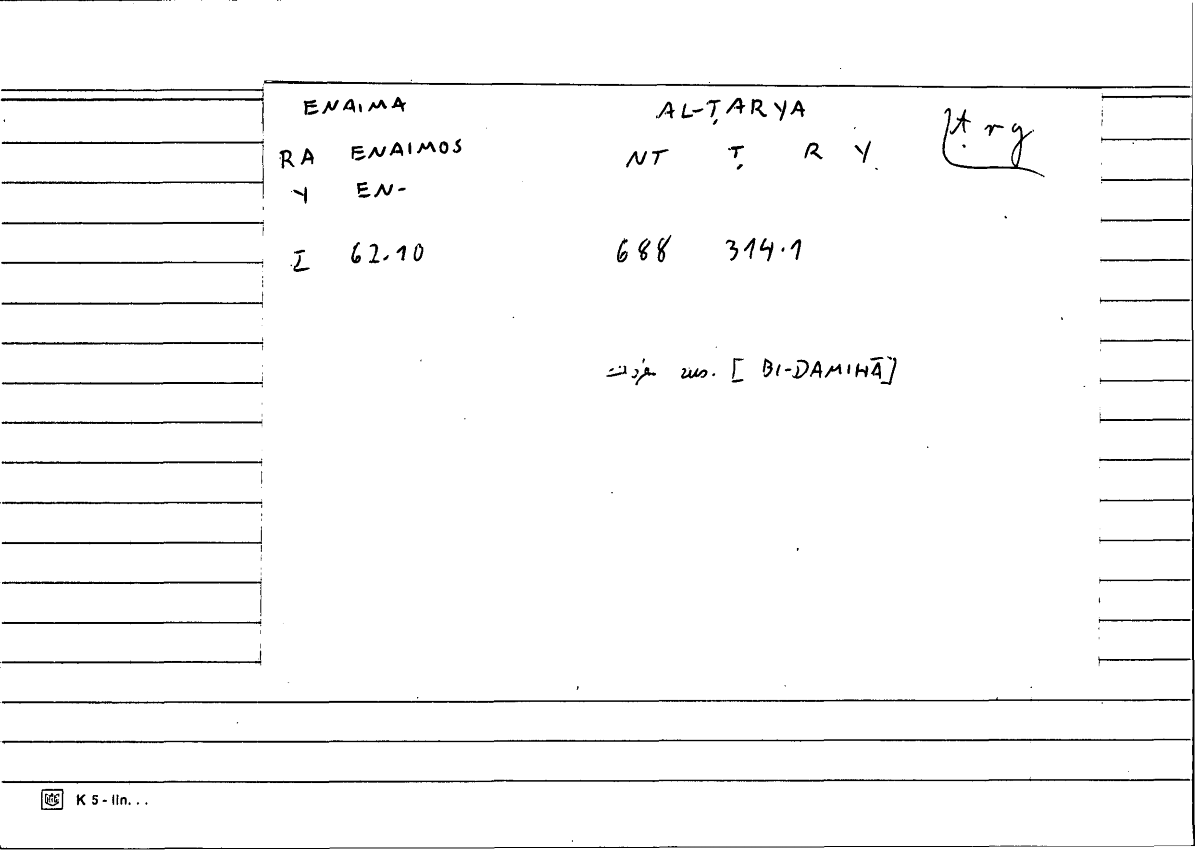 ENAIMA AL-ṬARYA
ṭrg
RA ENAIMOS NT Ṭ R Y
Y EN-
I 62.10 688 314.1
[ BI-DAMIHĀ]
K 5 - lin. . .